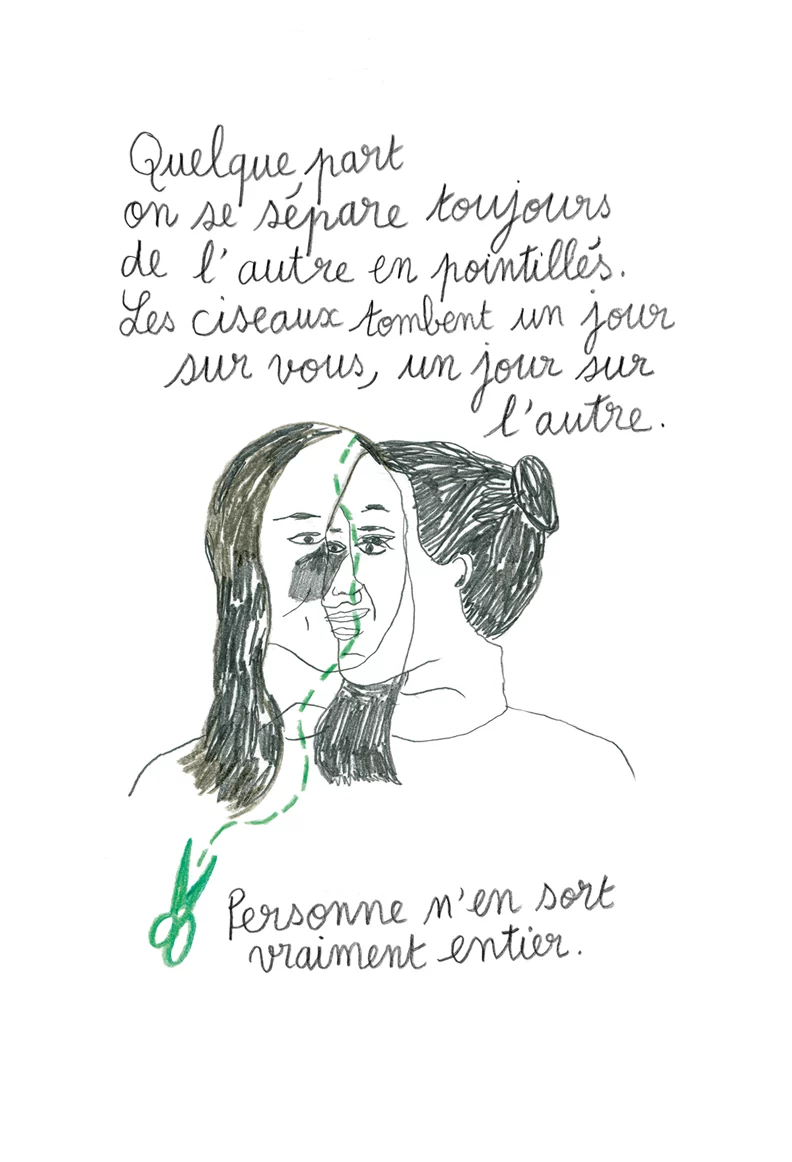 Quelque part
on se sépare toujours
de l'autre en pointillés.
Les ciseaux tombent un jour
sur vous, un jour sur
l'autre.
Personne n'en sort
vraiment entier.